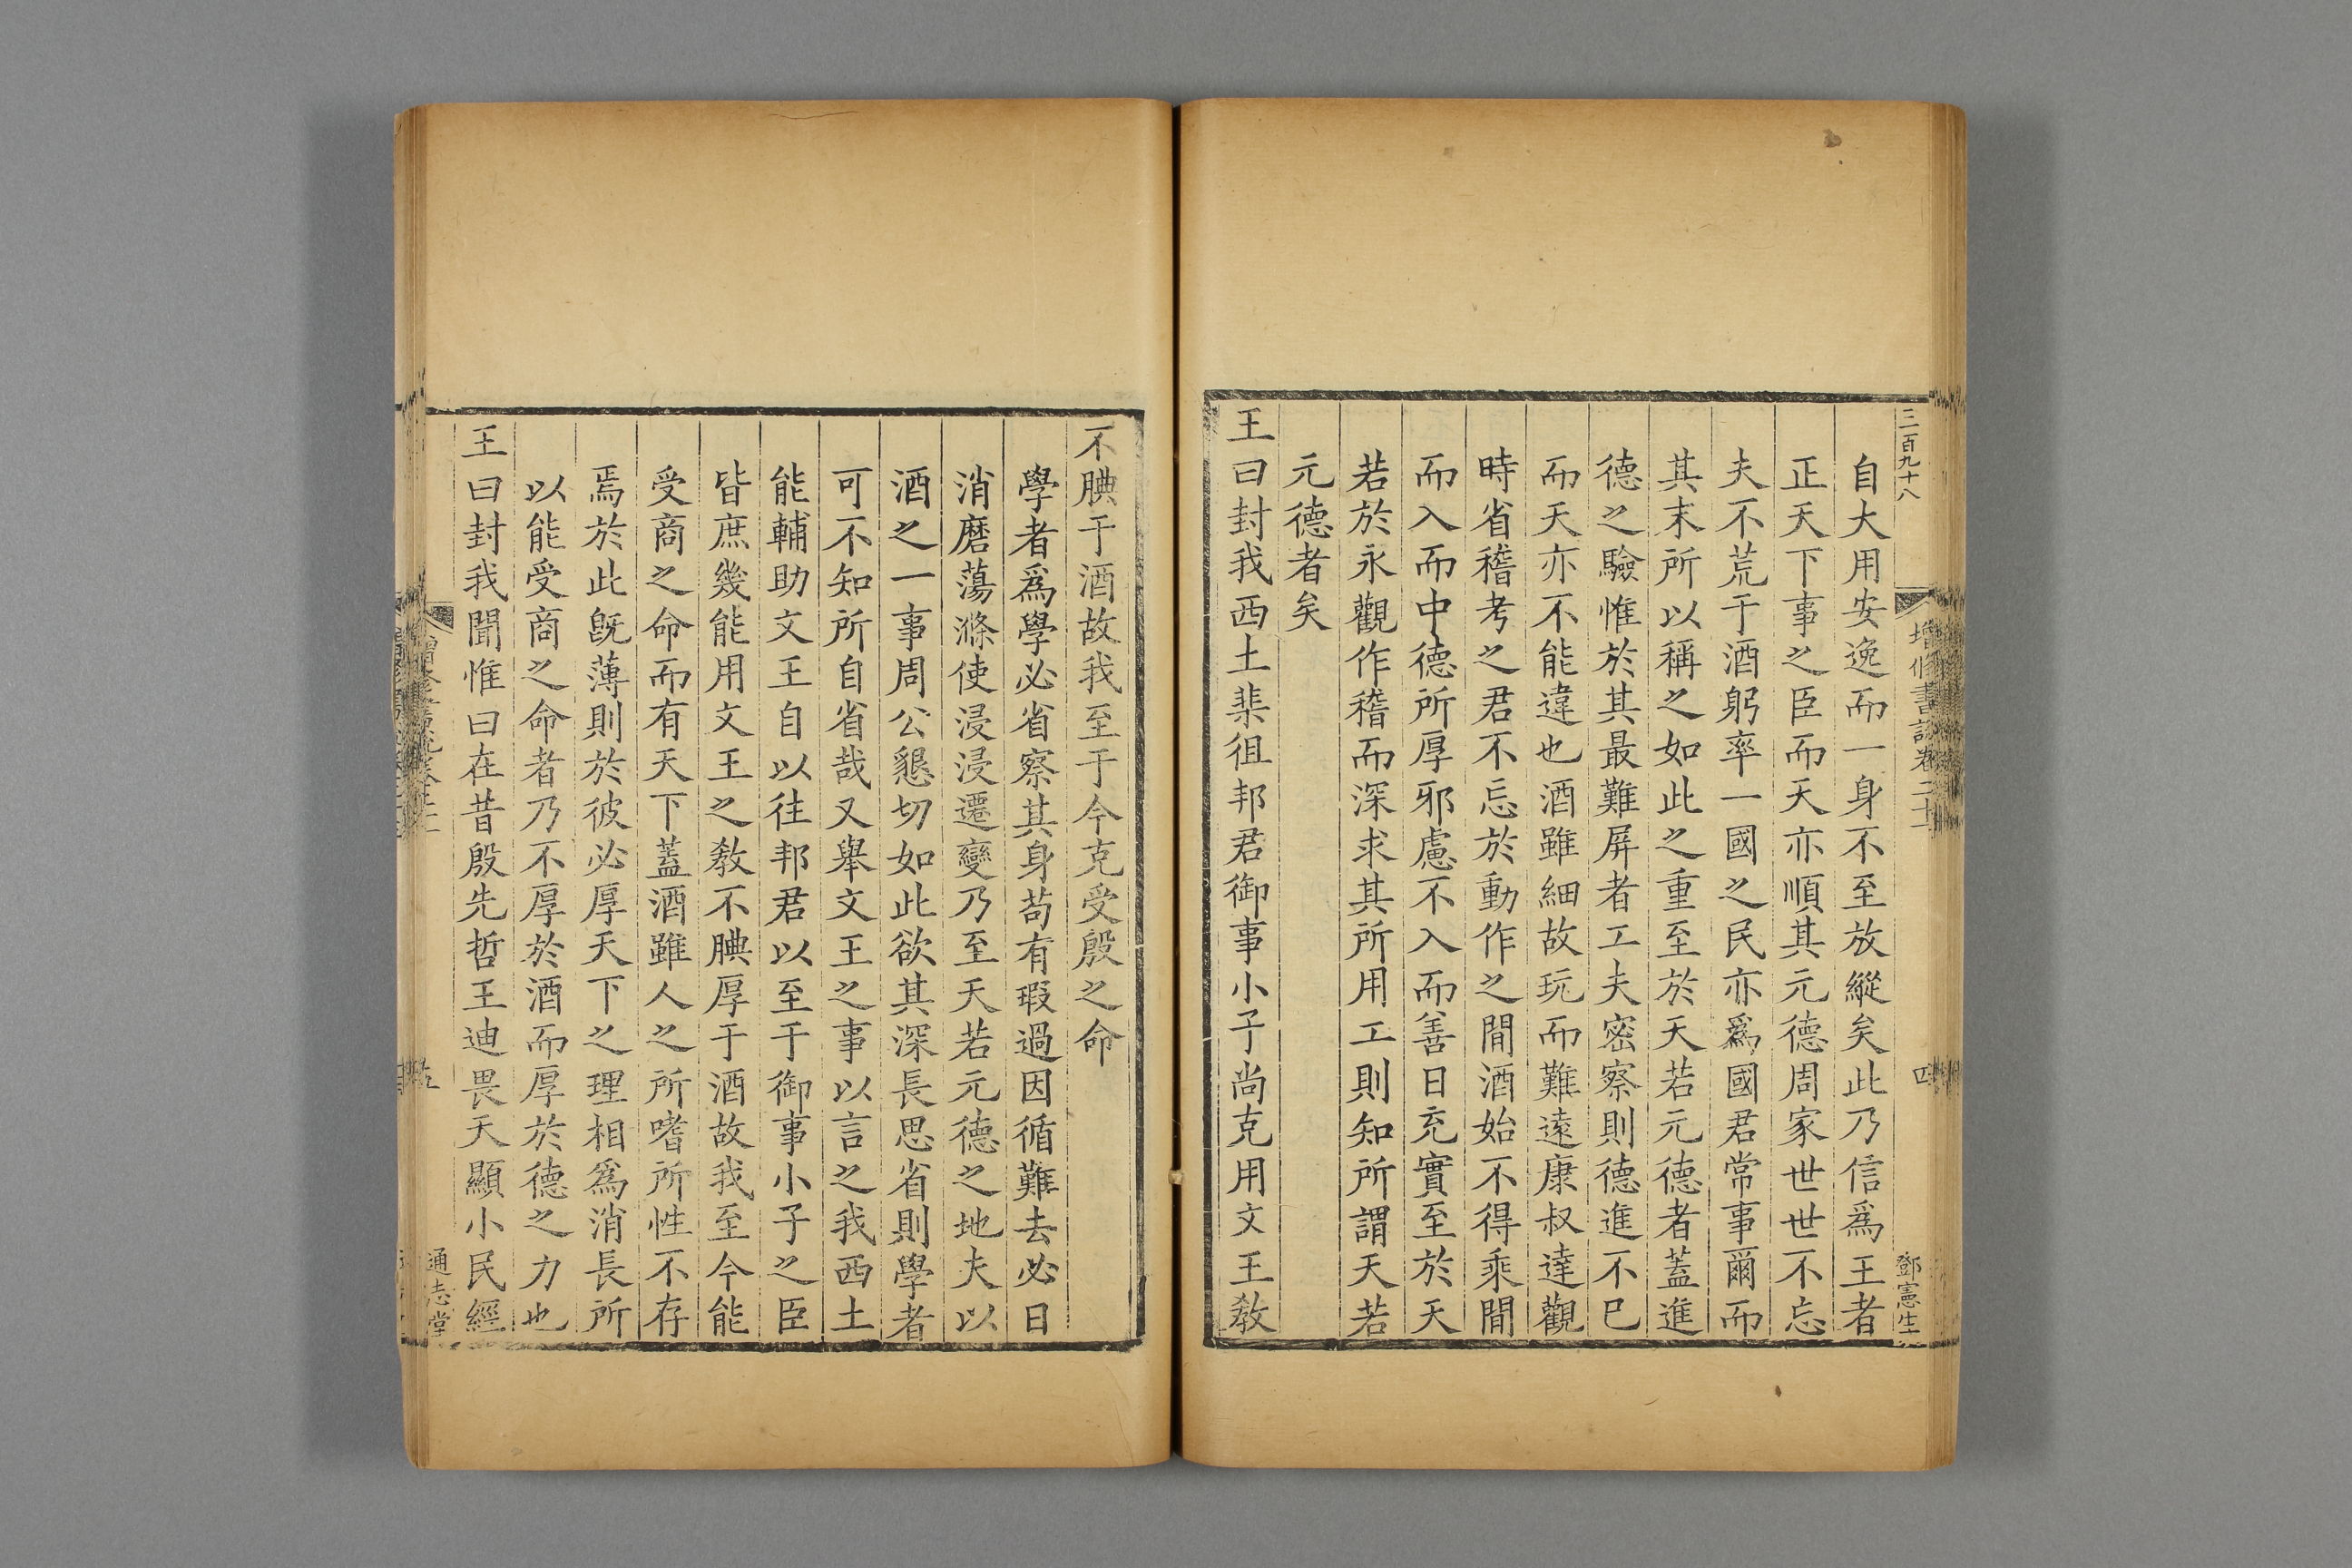 三百九十八
增修書說卷二十
四
鄧憲生
自大用安逸而一身不至放縱矣此乃信爲王者
正天下事之臣而天亦順其元德周家世世不忘
夫不荒于酒躬率一國之民亦爲國君常事爾而
其末所以稱之如此之重至於天若元德者蓋進
德之驗惟於其最難屏者工夫密察則德進不已
而天亦不能違也酒雖細故玩而難遠康叔達觀
時省稽考之君不忘於動作之間酒始不得乘間
而入而中德所厚邪慮不入而善日充實至於天
若於永觀作稽而深求其所用工則知所謂天若
元德者矣
王曰封我西土棐徂邦君御事小子尚克用文王敎
不腆于酒故我至于今克受殷之命
學者爲學必省察其身苟有瑕過因循難去必日
消磨蕩滌使浸浸遷變乃至天若元德之地夫以
酒之一事周公懇切如此欲其深長思省則學者
可不知所自省哉又舉文王之事以言之我西土
能輔助文王自以往邦君以至于御事小子之臣
皆庶幾能用文王之敎不腆厚于酒故我至今能
受商之命而有天下蓋酒雖人之所嗜所性不存
焉於此旣薄則於彼必厚天下之理相爲消長所
以能受商之命者乃不厚於酒而厚於德之力也
王曰封我聞惟曰在昔殷先哲王迪畏天顯小民經
五
通志堂